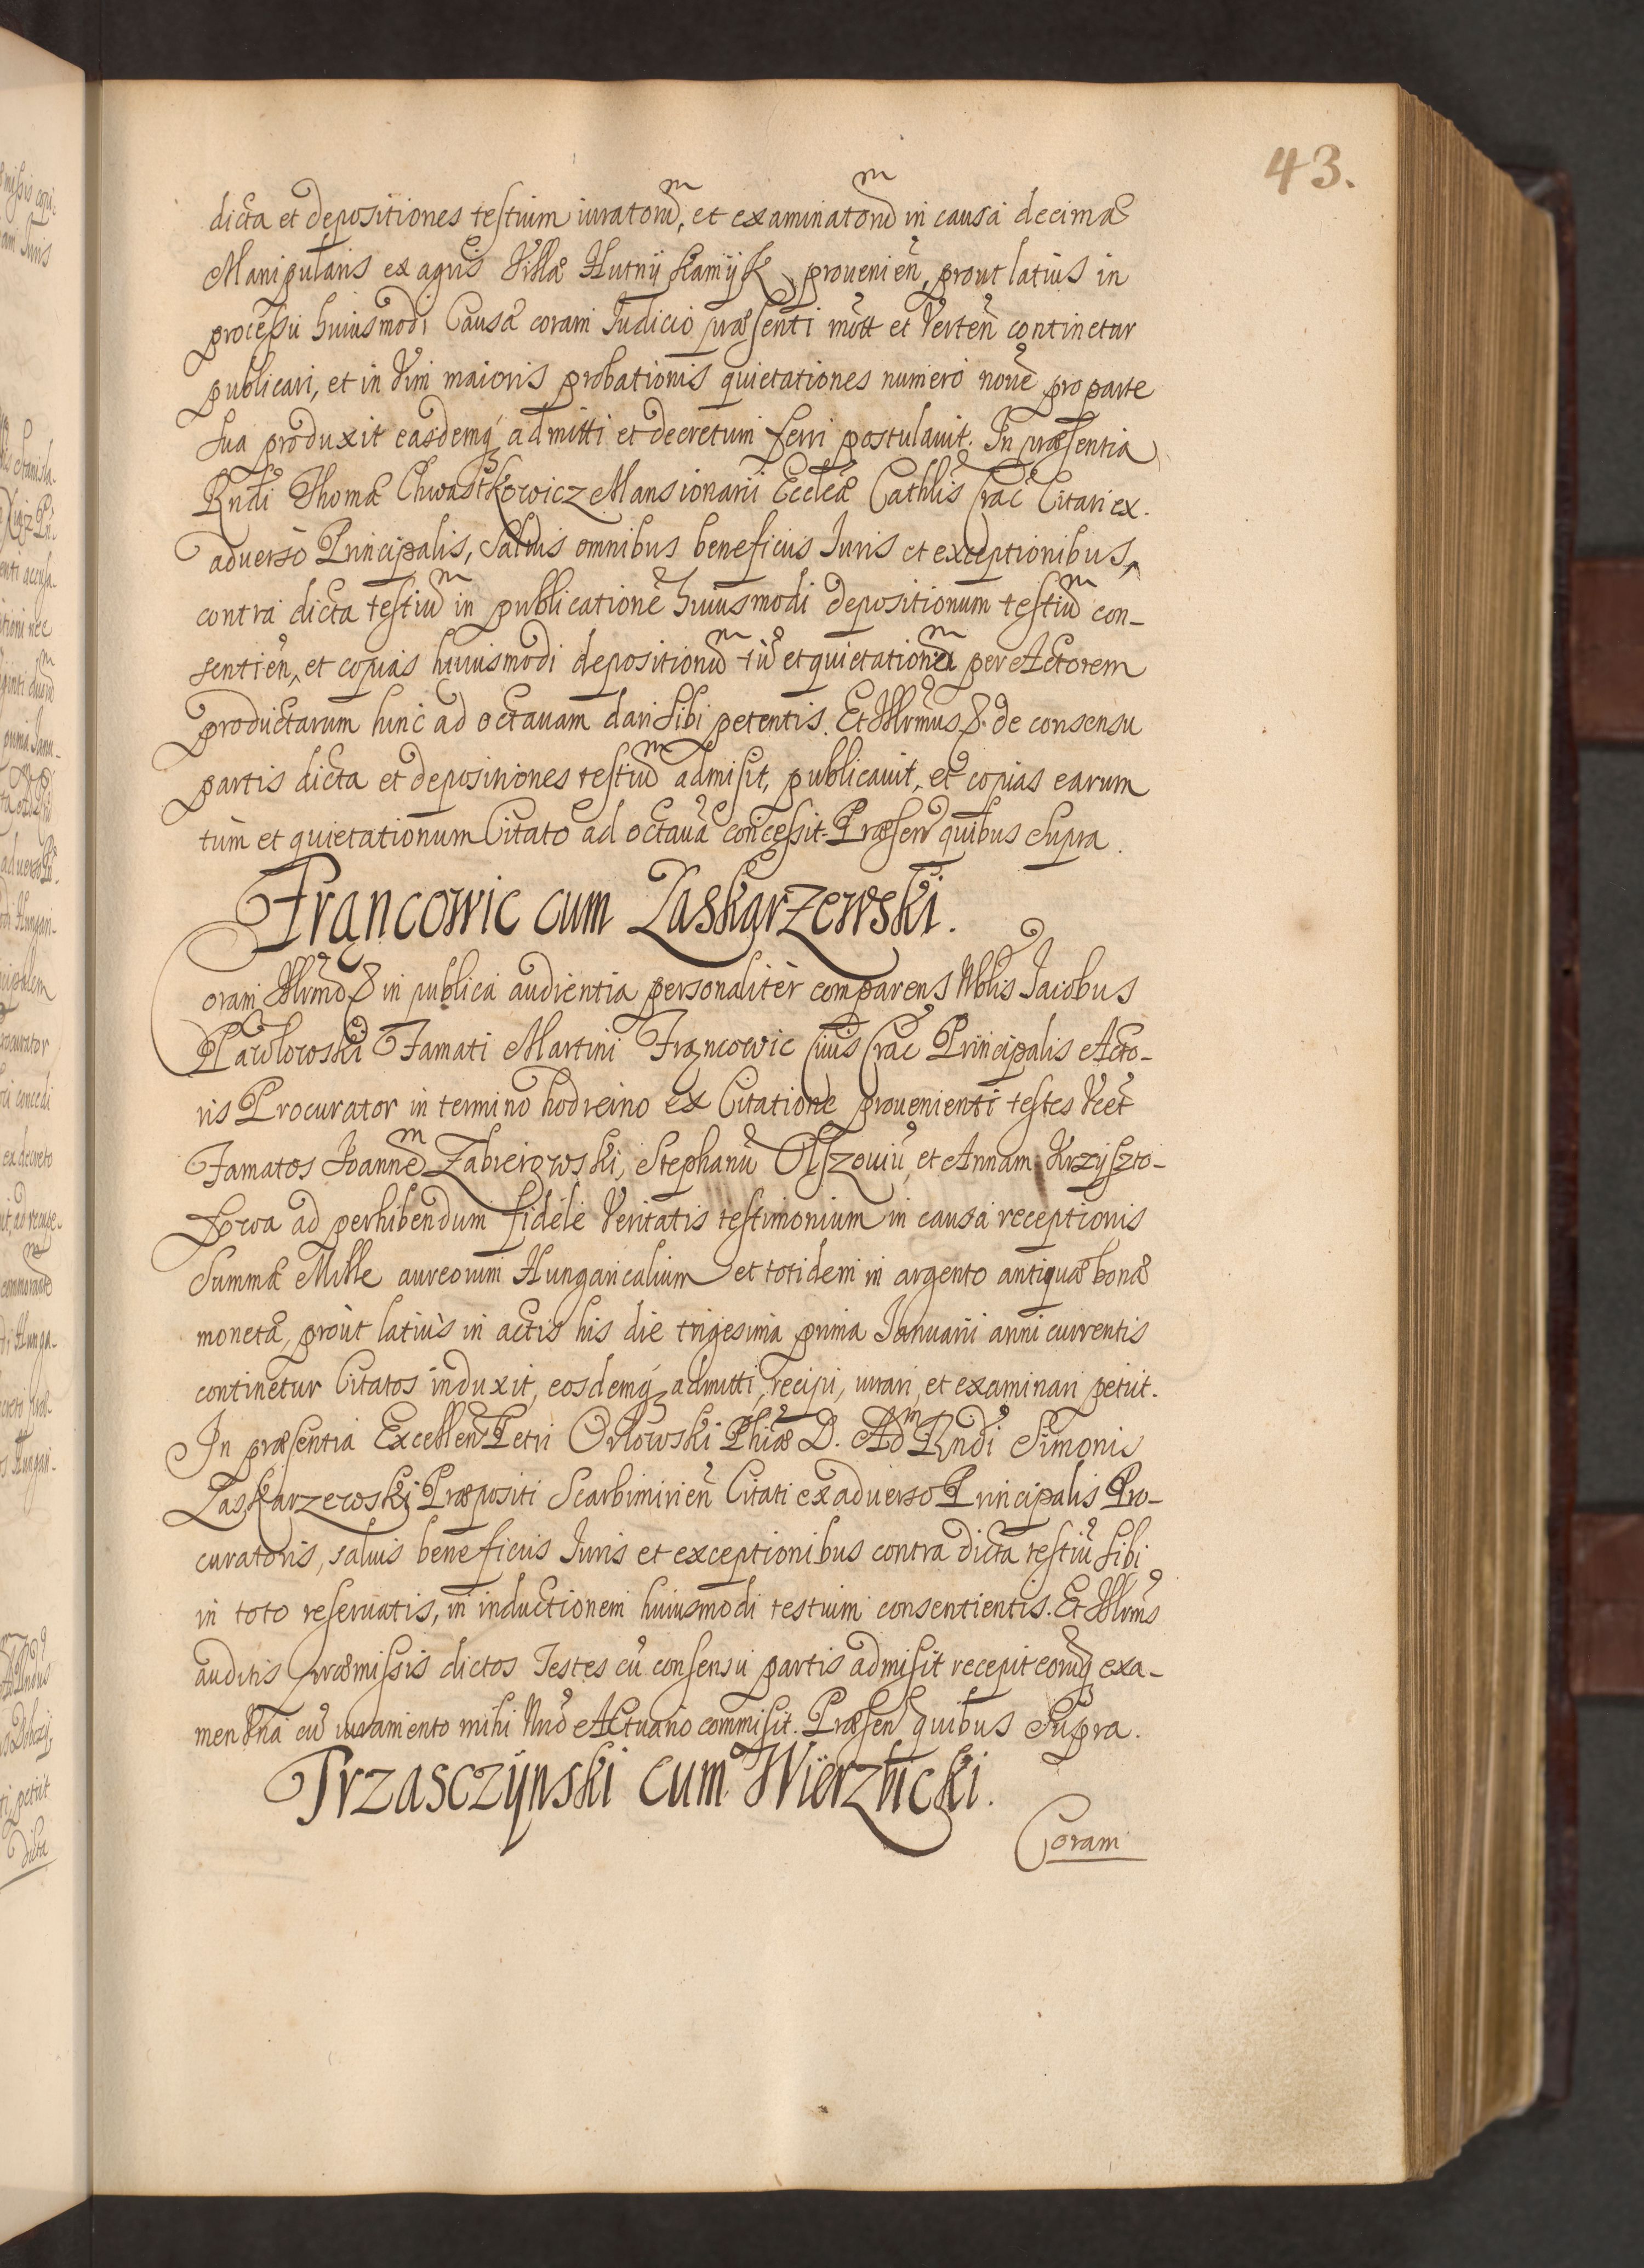 43.
dicta et depositiones testium iuratorũ, et examinatorũ in causa decimæ
Manipularis ex agris Villæ Hutnÿ Kamÿk, prouenieñ, prout latius in
processu huiusmodi Causæ coram Iudicio præsenti mott et verteñ continetur
publicari, et in vim maioris probationis quietationes numero nouẽ pro parte
sua produxit easdemq₃ admitti et decretum ferri postulauit. In præsentia
Rndi Thomæ Chwastkowicz Mansionarii Eccleæ Cathlis Crac Citati ex
aduerso Principalis, saluis omnibus beneficiis Iuris et exceptionibus,
contra dicta testiũ in publicationẽ huiusmodi depositionum testiũ con-
sentieñ, et copias huiusmodi depositionũ tiũ et quietationũ per Actorem
productarum hinc ad octauam dari sibi petentis. Et Illrmus D. de consensu
partis dicta et depositiones testiũ admisit, publicauit, et copias earum
tum et quietationum Citato ad octauã concessit. Præseñ quibus supra.
Frąncowic cum Zaskarzewski.
Coram Illrmo D in publica audientia personaliter comparens Nblis Iacobus
Pawlowski Famati Martini Frąncowic Ciuis Crac Principalis Acto-
ris Procurator in termino hodierno ex Citatione prouenienti testes vcet
Famatos Ioannẽ Zabierowski, Stephanũ Olszouiũ, et Annam Krzyszto-
fowa ad perhibendum fidele veritatis testimonium in causa receptionis
Summæ Mille aureorum Hungaricalium et totidem in argento antiquæ bonæ
monetæ, prout latius in actis his die trigesima prima Ianuarii anni currentis
continetur Citatos induxit, eosdemq₃ admitti, recipi, iurari, et examinari petiit.
In præsentia Excelleñ Petri Orlowski Phiæ D. Adm Rndi Simonis
Zaskarzewski Præpositi Scarbimirieñ Citati ex aduerso Principalis Pro-
curatoris, saluis beneficiis Iuris et exceptionibus contra dicta testiũ sibi
in toto reseruatis, in inductionem huiusmodi testium consentientis. Et Illrms
auditis præmissis dictos Testes cũ consensu partis admisit recepit eorũq₃ exa-
men vna cũ iuramento mihi Nrõ Actuario commisit. Præseñ quibus Supra.
Trzasczÿnski cum Wierzbicki.
Coram